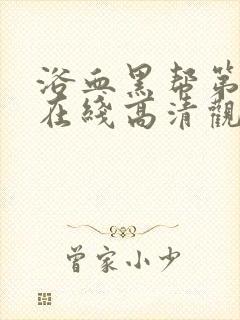 浴血黑帮第
在綫高清觀
曾家小少